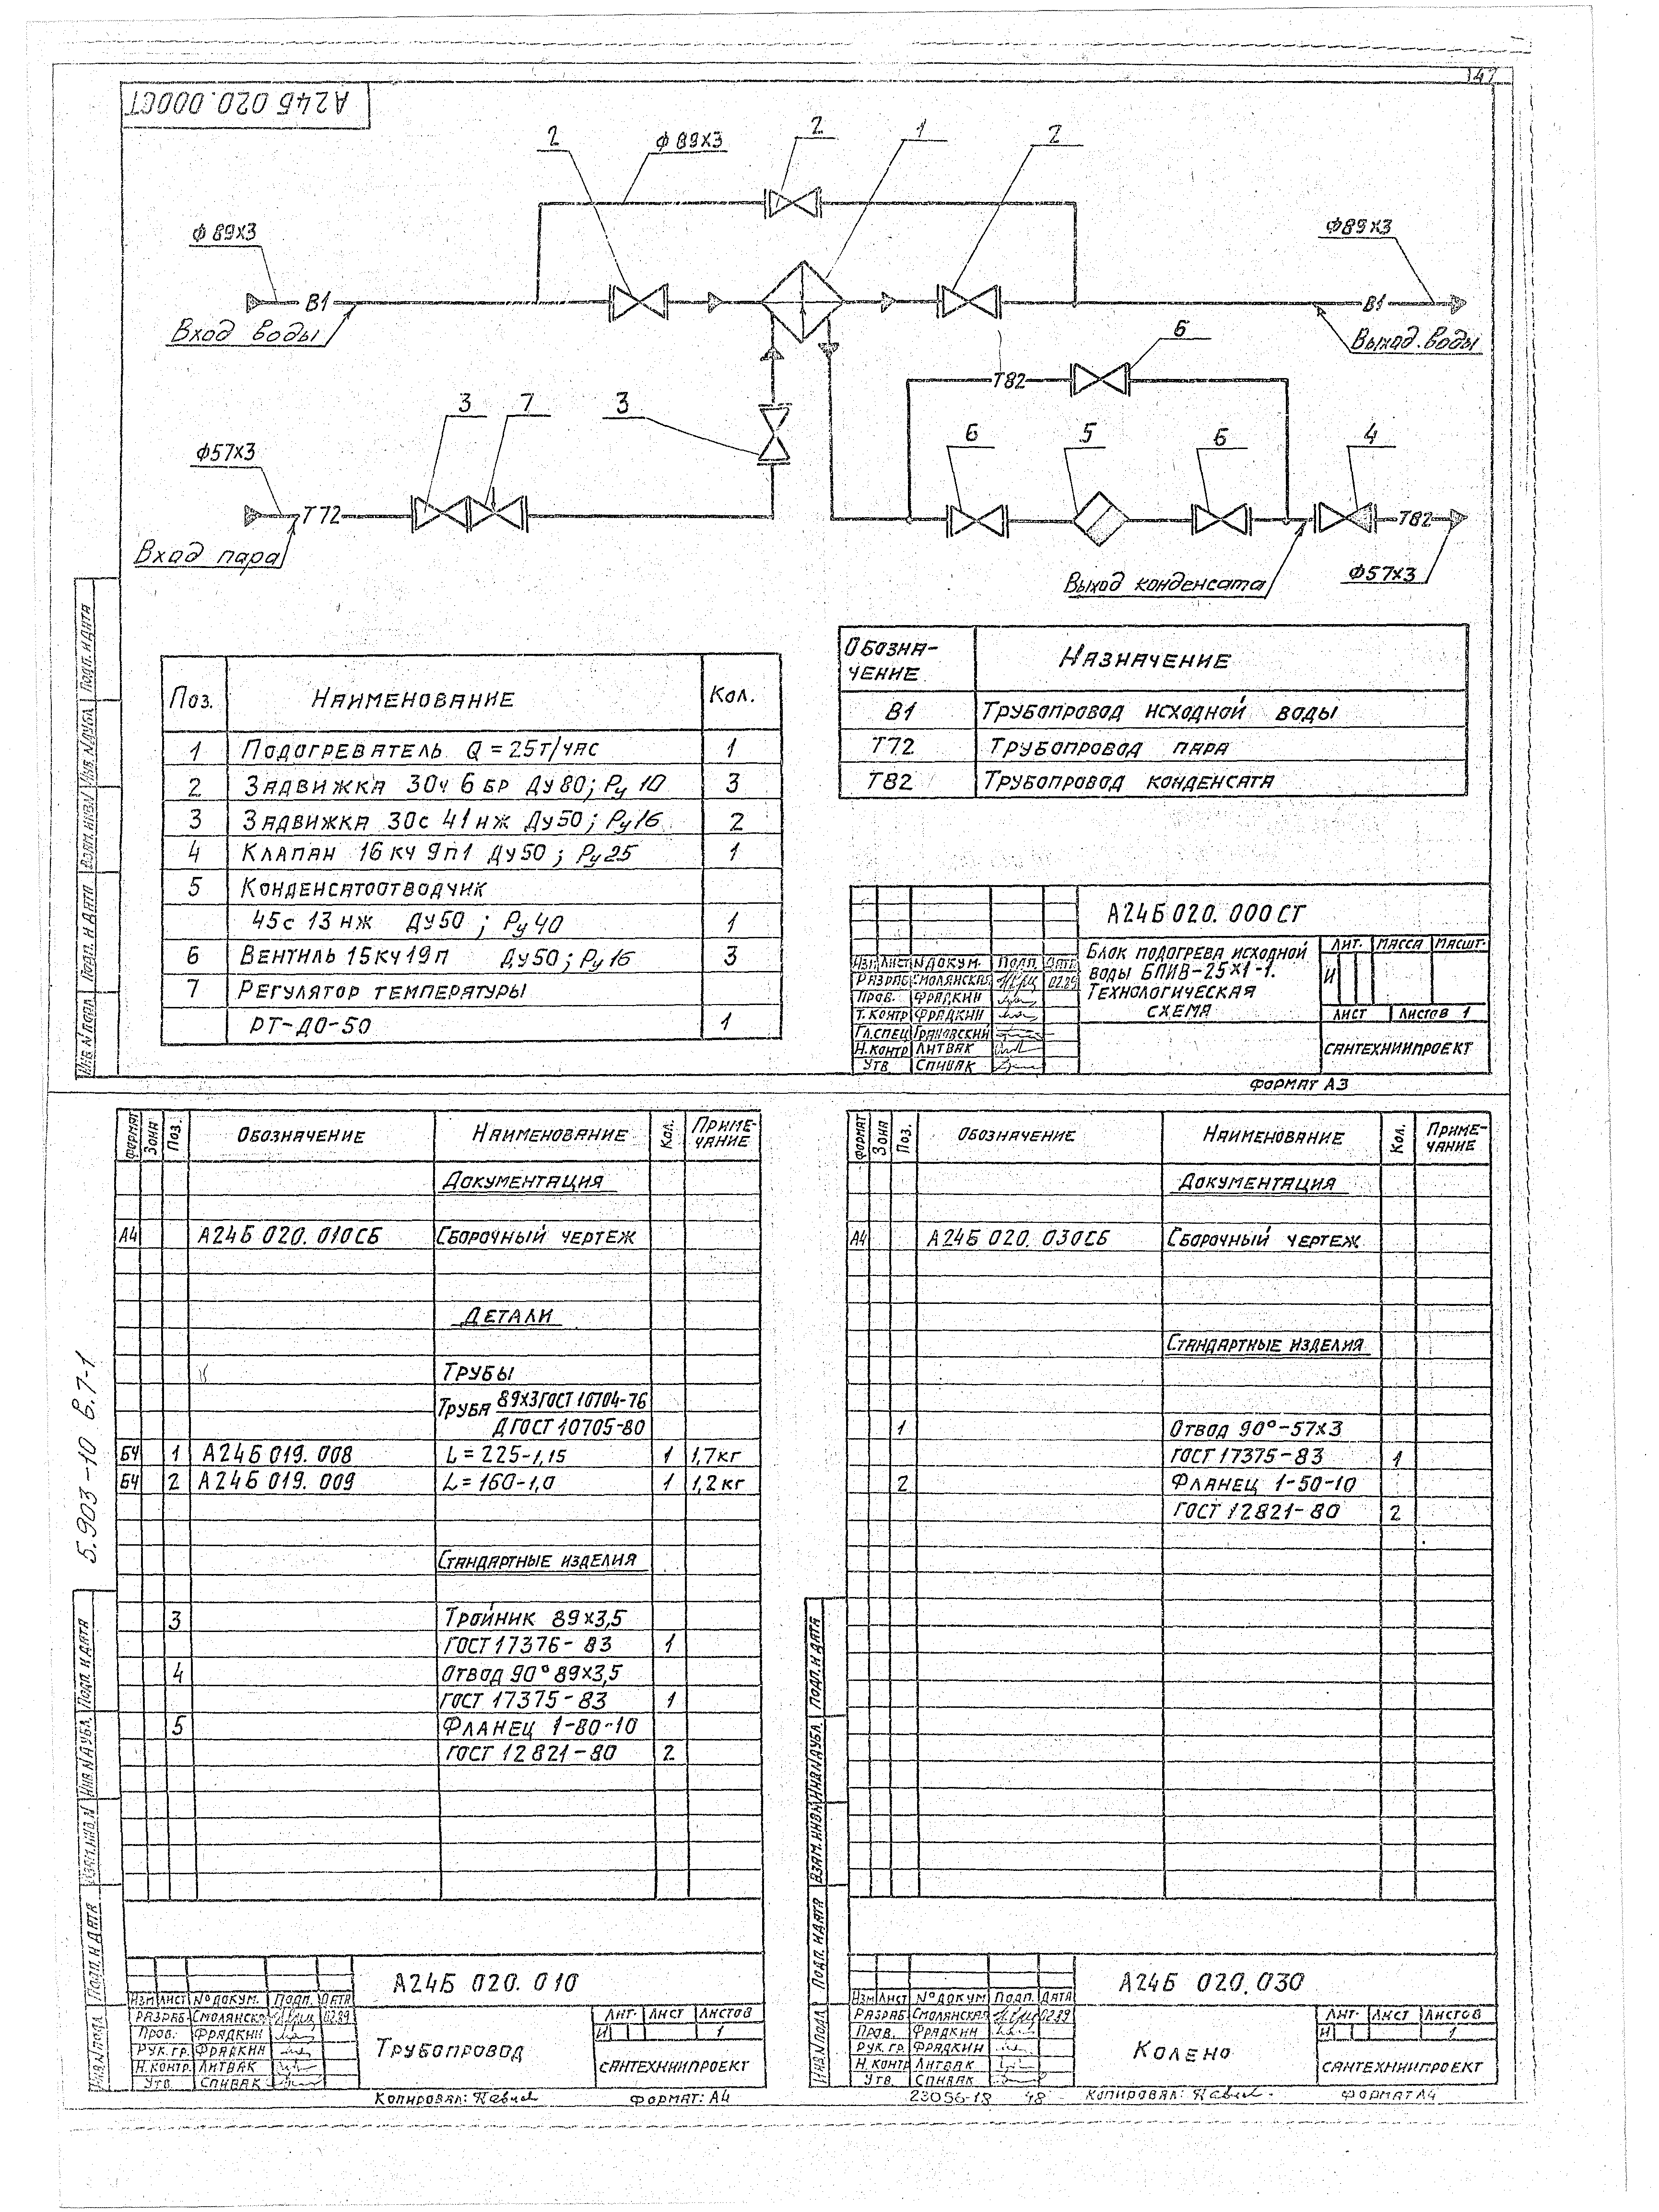 147
А24Б 020.000СТ
2
ф 89х3
2
1
2
ф 89х3
ф89х3
В1
В1
Вход воды
Выход воды
6
Т82
3
7
3
6
5
6
4
ф57х3
Т72
Т82
Вход пара
Выход конденсата
ф57х3
Поз. Наименование Кол.
1 Подогреватель Q = 25т/час 1
2 Задвижка 30ч 6 бр Ду 80; Ру 10 3
3 Задвижка 30с 41 нж Ду50; Ру16 2
4 Клапан 16 кч 9п1 Ду50; Ру25 1
5 Конденсатоотводчик
45с 13 нж Ду50; Ру40 1
6 Вентиль 15кч19п Ду50; Ру16 3
7 Регулятор температуры
РТ-ДО-50 1
Обозна-
чение
Назначение
В1 Трубопровод исходной воды
Т72 Трубопровод пара
Т82 Трубопровод конденсата
А24Б 020. 000СТ
Блок подогрева исходной
воды БПИВ-25х1-1.
Технологическая
схема
Лит. Масса Масшт.
И
Лист Листов 1
Сантехниипроект
Изм Лист № докум. Подп. Дата
Разраб Смолянская 02.89
Пров. Фрядкин
Т.контр Фрядкин
Гл.спец Грановский
Н.контр Литвак
Утв Спивак
Формат А3
Инв. № подл. Подп. и дата Взам. инв. № Инв. № дубл. Подп. и дата
5.903-10 в.7-1
Формат Зона Поз. Обозначение Наименование Кол. Приме-
чание
Документация
А4 А24Б 020. 010СБ Сборочный чертеж
Детали
Трубы
Труба 89х3 ГОСТ 10704-76
Д ГОСТ 10705-80
БЧ 1 А24Б 019. 008 L = 225-1,15 1 1,7кг
БЧ 2 А24Б 019. 009 L = 160-1,0 1 1,2кг
Стандартные изделия
3 Тройник 89х3,5
ГОСТ 17376-83 1
4 Отвод 90° 89х3,5
ГОСТ 17375-83 1
5 Фланец 1-80-10
ГОСТ 12821-80 2
Инв. № подл. Подп. и дата Взам. инв. № Инв. № дубл. Подп. и дата
А24Б 020. 010
Изм Лист № докум. Подп. Дата
Разраб Смолянская 02.89
Пров. Фрядкин
Рук. гр. Фрядкин
Н.контр. Литвак
Утв. Спивак
Трубопровод
Лит. Лист Листов
И 1
Сантехниипроект
Копировал: Формат: А4
Формат Зона Поз. Обозначение Наименование Кол. Приме-
чание
Документация
А4 А24Б 020. 030СБ Сборочный чертеж
Стандартные изделия
1 Отвод 90°-57х3
ГОСТ 17375-83 1
2 Фланец 1-50-10
ГОСТ 12821-80 2
Инв. № подл. Подп. и дата Взам. инв. № Инв. № дубл. Подп. и дата
А24Б 020. 030
Изм Лист № докум Подп. Дата
Разраб Смолянская 02.89
Пров. Фрядкин
Рук. гр. Фрядкин
Н.контр Литвак
Утв. Спивак
Колено
Лит. Лист Листов
И 1
Сантехниипроект
23056-18 48 Копировал: Формат А4